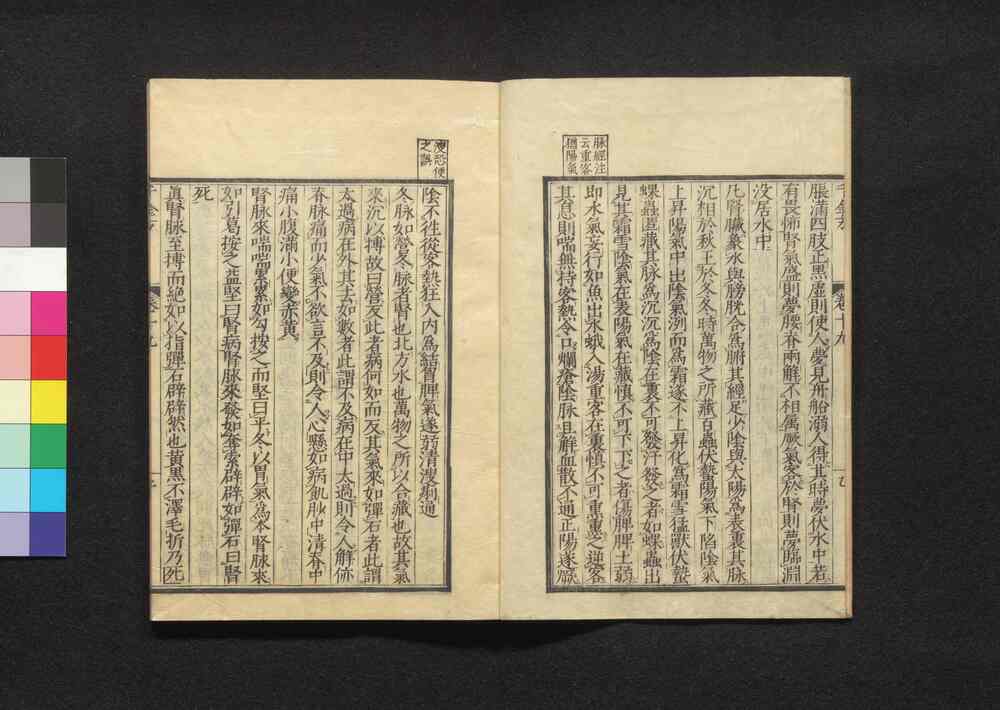 脹滿四肢正黑虛則使人夢見舟船溺人得其時夢伏水中若
有畏怖腎氣盛則夢腰脊兩解不相屬厥氣客於腎則夢臨淵
沒居水中
凡腎臟象水與膀胱合爲腑其經足少陰與太陽爲表裏其脉
沉相於秋王於冬冬時萬物之所藏百蟲伏蟄陽氣下陷陰氣
上昇陽氣中出陰氣冽而爲霜遂不上昇化爲霜雪猛獸伏蟄
蜾蟲匿藏其脉爲沉沉爲陰在裏不可發汗發之者如蜾蟲出
見其霜雪陰氣在表陽氣在藏慎不可下下之者傷脾脾土弱
即水氣妄行如魚出水蛾入湯重客在裏慎不可熏熏之逆客
其息則喘無持客熱令口爛瘡陰脉且解血散不通正陽遂厥
脉經注
云重客
猶陽氣
陰不徃從客熱狂入內爲結胃脾氣遂弱清溲痢通
冬脉如營冬脉者腎也北方水也萬物之所以合藏也故其氣
來沉以搏故曰營反此者病何如而反其氣來如彈石者此謂
太過病在外其去如數者此謂不及病在中太過則令人解㑊
脊脉痛而少氣不欲言不及則令人心懸如病飢䏚中清脊中
痛小腹滿小便變赤黃
腎脉來喘喘累累如勾按之而堅曰平冬以胃氣爲本腎脉來
如引葛按之益堅曰腎病腎脉來發如奪索辟辟如彈石曰腎
死
真腎脉至搏而絕如以指彈石辟辟然也黃黑不澤毛折乃死
溲恐便
之誤
卷十九